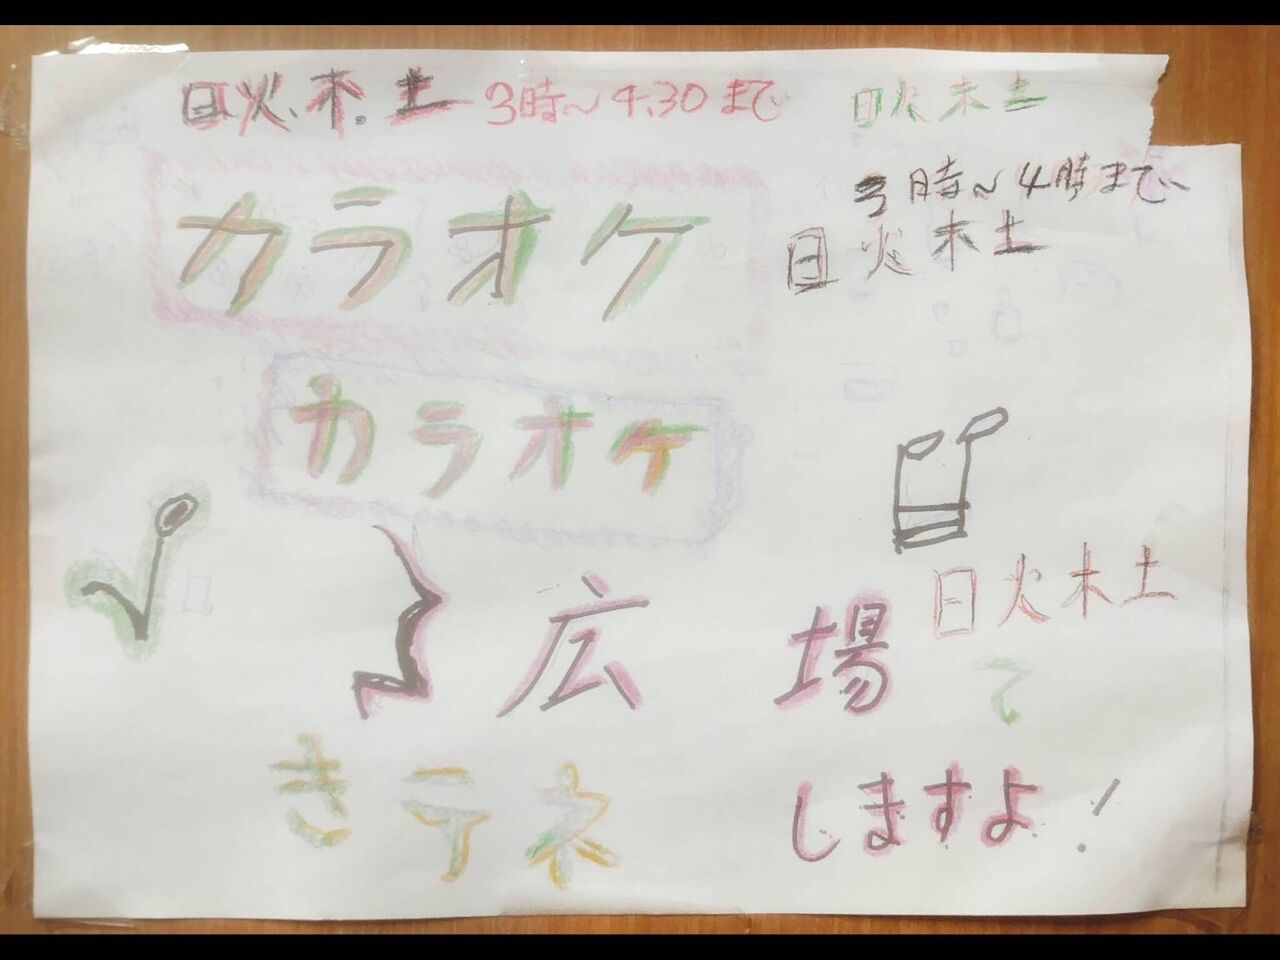 日火.木.土 3時～4.30まで
日火木土
3時～4時まで
日火木土
カラオケ
カラオケ
日火木土
広場で
きテネ
しますよ!